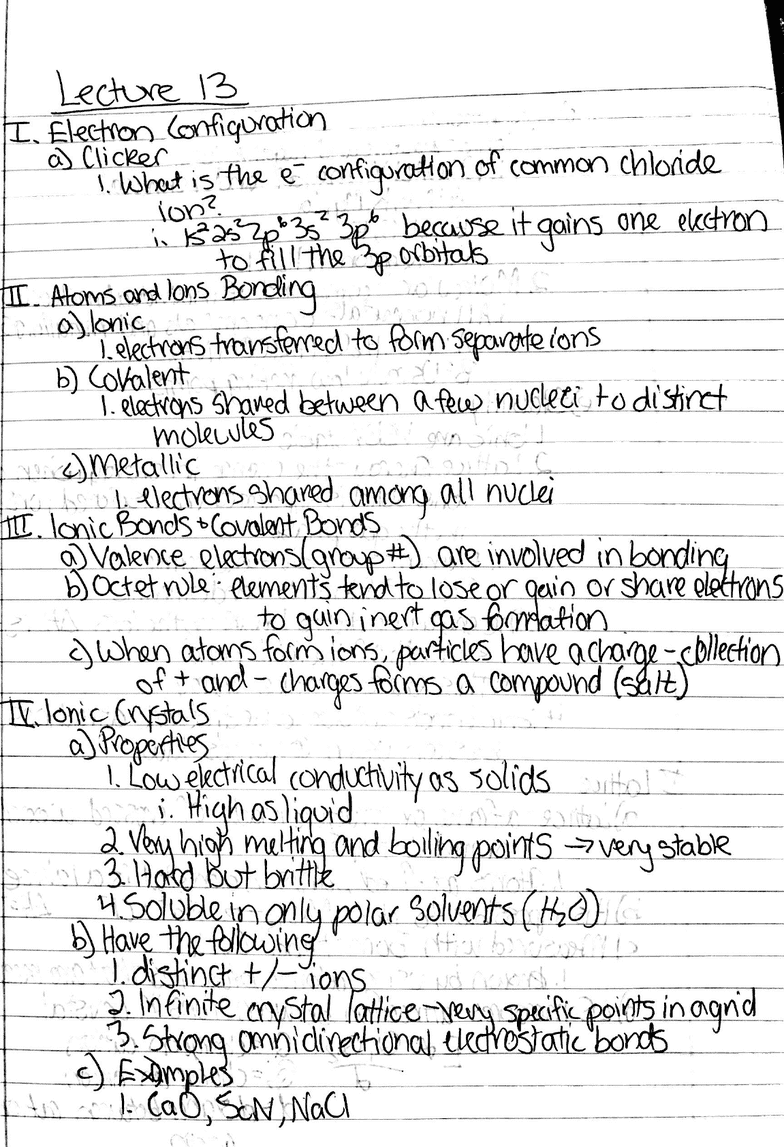 Lecture 13
I. Electron Configuration
a) Clicker
1. What is the e⁻ configuration of common chloride
ion?
i. 1s²2s²2p⁶3s²3p⁶ because it gains one electron
to fill the 3p orbitals
II. Atoms and Ions Bonding
a) Ionic
1. electrons transferred to form separate ions
b) Covalent
1. electrons shared between a few nucleti to distinct
molecules
c) Metallic
1. electrons shared among all nuclei
III. Ionic Bonds + Covalent Bonds
a) Valence electrons (group #) are involved in bonding
b) Octet rule: elements tend to lose or gain or share elettrons
to gain inert gas formation
c) When atoms form ions, particles have a charge - collection
of + and - charges forms a compound (salt)
IV. Ionic Crystals
a) Properties
1. Low electrical conductivity as solids
i. High as liquid
2. Very high melting and boiling points → very stable
3. Hard but brittle
4. Soluble in only polar solvents (H₂O)
b) Have the following
1. distinct +/- ions
2. Infinite crystal lattice - very specific points in a grid
3. Strong omnidirectional electrostatic bonds
c) Examples
1. CaO, ScN, NaCl